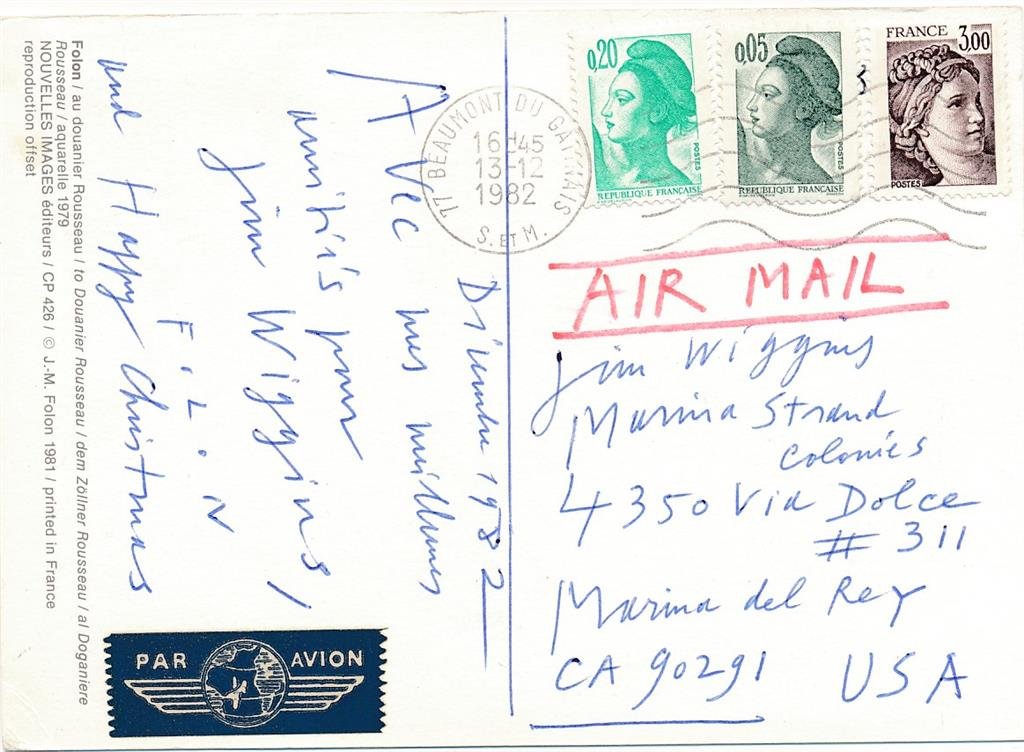 Folon / au douanier Rousseau / to Douanier Rousseau / dem Zöllner Rousseau / al Doganiere
Rousseau / aquarelle 1979
NOUVELLES IMAGES éditeurs / CP 426 / © J.-M. Folon 1981 / printed in France
reproduction offset
Décembre 1982
Avec mes meilleures
amitiés pour
Jim Wiggins,
F.L.N
and Happy Christmas
PAR AVION
77 BEAUMONT DU GATINAIS
16-45
13-12
1982
S. ET M.
0,20
POSTES
REPUBLIQUE FRANÇAISE
0,05
POSTES
REPUBLIQUE FRANÇAISE
FRANCE 3,00
POSTES
AIR MAIL
Jim Wiggins
Marina Strand
Colonies
4350 Via Dolce
# 311
Marina del Rey
CA 90291 USA